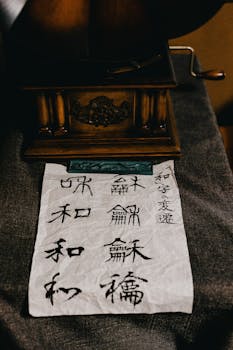 和字变遷
龢龢龢龢
咊和和和